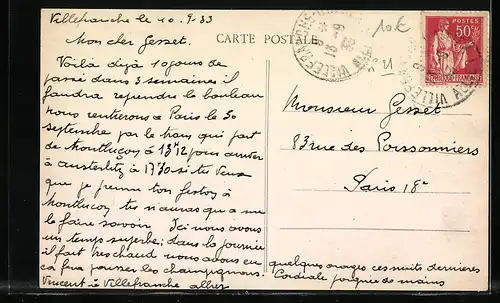 Villefranche le 10.9.33
Mon cher Gesset.
Voilà déjà 10 jours de
passé dans 3 semaines il
faudra reprendre le bouleau
nous rentrerons à Paris le 30
septembre par le train qui part
de Montluçon à 13h12 pour arriver
à austerlitz à 17h30 si tu veux
que je prenne ton à
Montluçon tu n'auras qu'a me
le faire savoir. Ici nous avons
un temps superbe; dans la journée
il fait très chaud nous avons eu
ça fera pousser les champignons.
Vincent à Villefranche allier
CARTE POSTALE
10€
POSTES
50c
Monsieur Gesset
83 rue des Poissonniers
Paris 18e
quelques orages ces nuits dernières
Cordiale poignée de mains